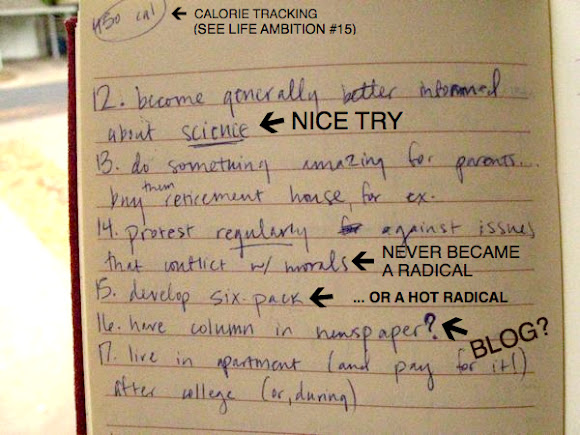 450 cal ← CALORIE TRACKING
(SEE LIFE AMBITION #15)
12. become generally better informed
about science ← NICE TRY
13. do something amazing for parents...
buy them retirement house, for ex.
14. protest regularly for against issues
that conflict w/ morals ← NEVER BECAME
A RADICAL
15. develop six-pack ← ... OR A HOT RADICAL
16. have column in newspaper? ← BLOG?
17. live in apartment (and pay for it!)
after college (or, during)